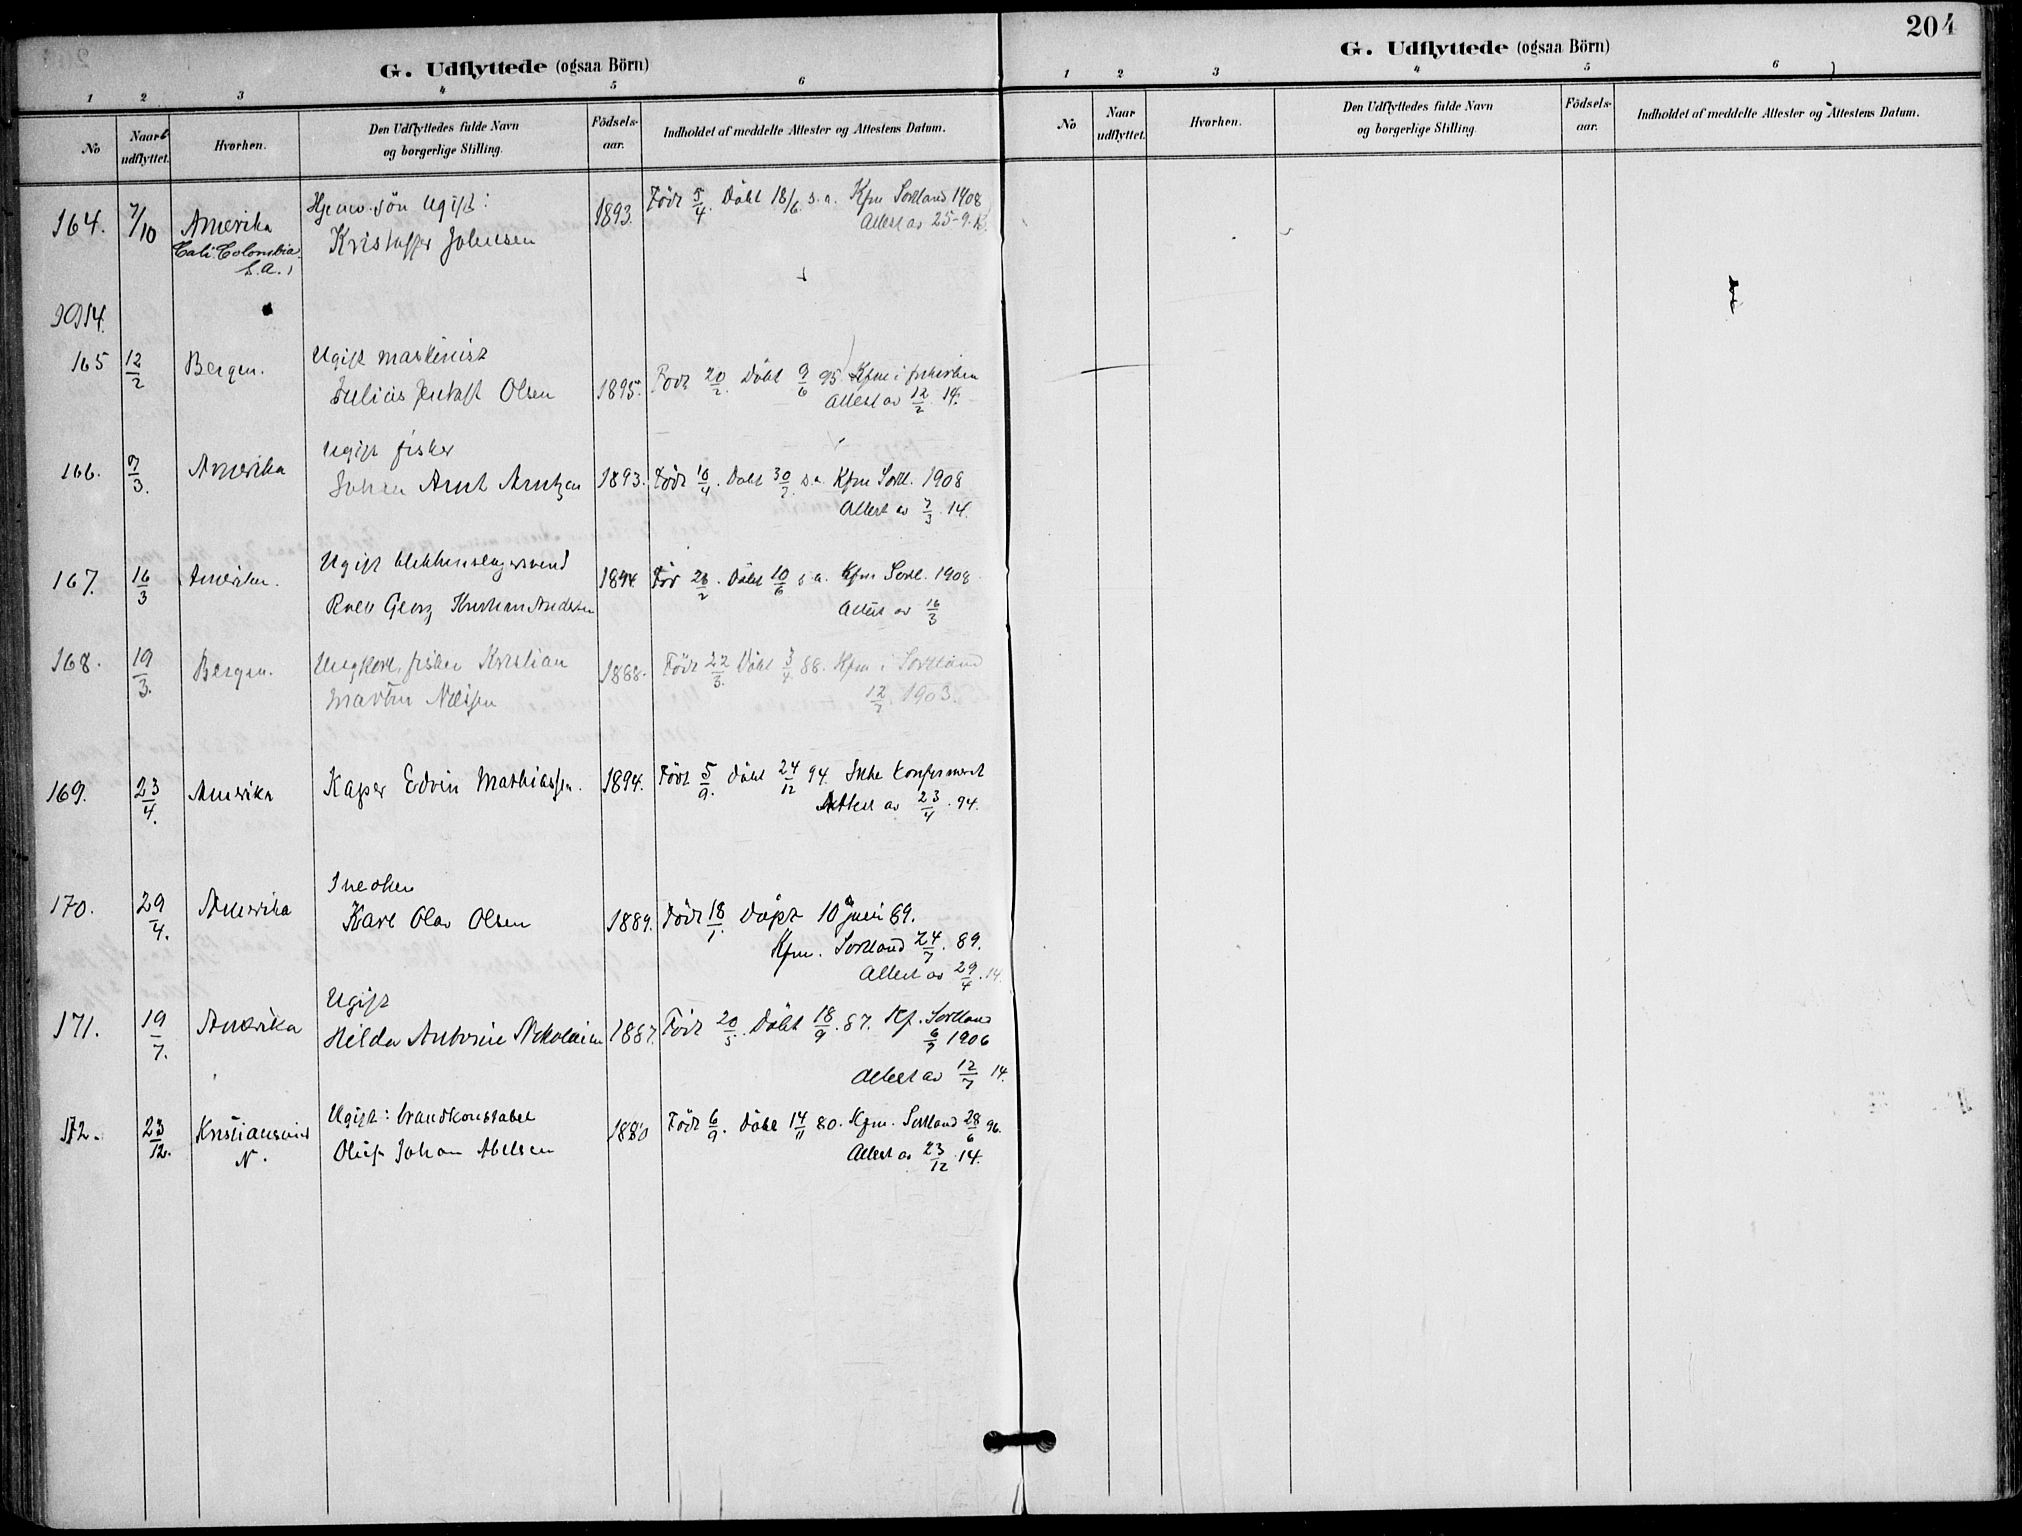 204
G. Udflyttede (ogsaa Börn)
1 2 3 4 5 6
No
Naar udflyttet.
Hvorhen.
Den Udflyttedes fulde Navn og borgerlige Stilling.
Födsels-aar.
Indholdet af meddelte Attester og Attestens Datum.
164. 7/10 Amerika
Cali. Colombia.
S.A.
ugift:
Johnsen
1893.
Född 5/4. Døbt 18/6. s.a. Kfm Sortland 1908
Attest av 25-9-
1914.
165 12/2 Bergen.
Ugift maskinist
Julius Olsen
1895.
Född 20/2. Döbt 9/6 95. Kfm i
Attest av 12/2. 14.
166. 7/3. Amerika
Ugift fisker
Johan Arnt Arntzen
1893.
Född 10/4. Döbt 30/7. s.a. Kfm Sortl. 1908
Attest av 7/3. 14.
167. 16/3 Amerika.
Ugift
Georg Kristian Andersen
1894.
Död 28/2. Döbt 10/6 s.a. Kfm Sortl. 1908
Attest av 16/3
168. 19/3. Bergen.
Ungkarl, fisker Kristian
Martin Nilssen
1888.
Född 22/3. Döbt 3/4. 88. Kfm i Sortland
12/7. 1903.
169. 23/4. Amerika
Kasper Edvin Mathiassen.
1894.
Född 5/9. döbt 24/12 94. Ikke konfirmeret
Attest av 23/4. 94.
170. 29/4. Amerika
Snedker
Karl Olav Olsen
1889.
Född 18/1. Döpt 10 juni 89.
Kfm. Sortland 24/7. 89.
Attest av 29/4. 14.
171. 19/7. Amerika
Ugift
Hilda Antonie Nikolaisen
1887.
Född 20/5. Döbt 18/9. 87. Kf. Sortland
6/7 1906
Attest av 12/7 14.
172. 23/12. Kristiansund
N.
Ugift: brandkonstabel
Oluf Johan Abelsen
1880
Född 6/9. Döbt 14/11 80. Kfm. Sortland 28/6 96.
Attest av 23/12. 14.
G. Udflyttede (ogsaa Börn)
1 2 3 4 5 6
No
Naar udflyttet.
Hvorhen.
Den Udflyttedes fulde Navn og borgerlige Stilling.
Födsels-aar.
Indholdet af meddelte Attester og Attestens Datum.